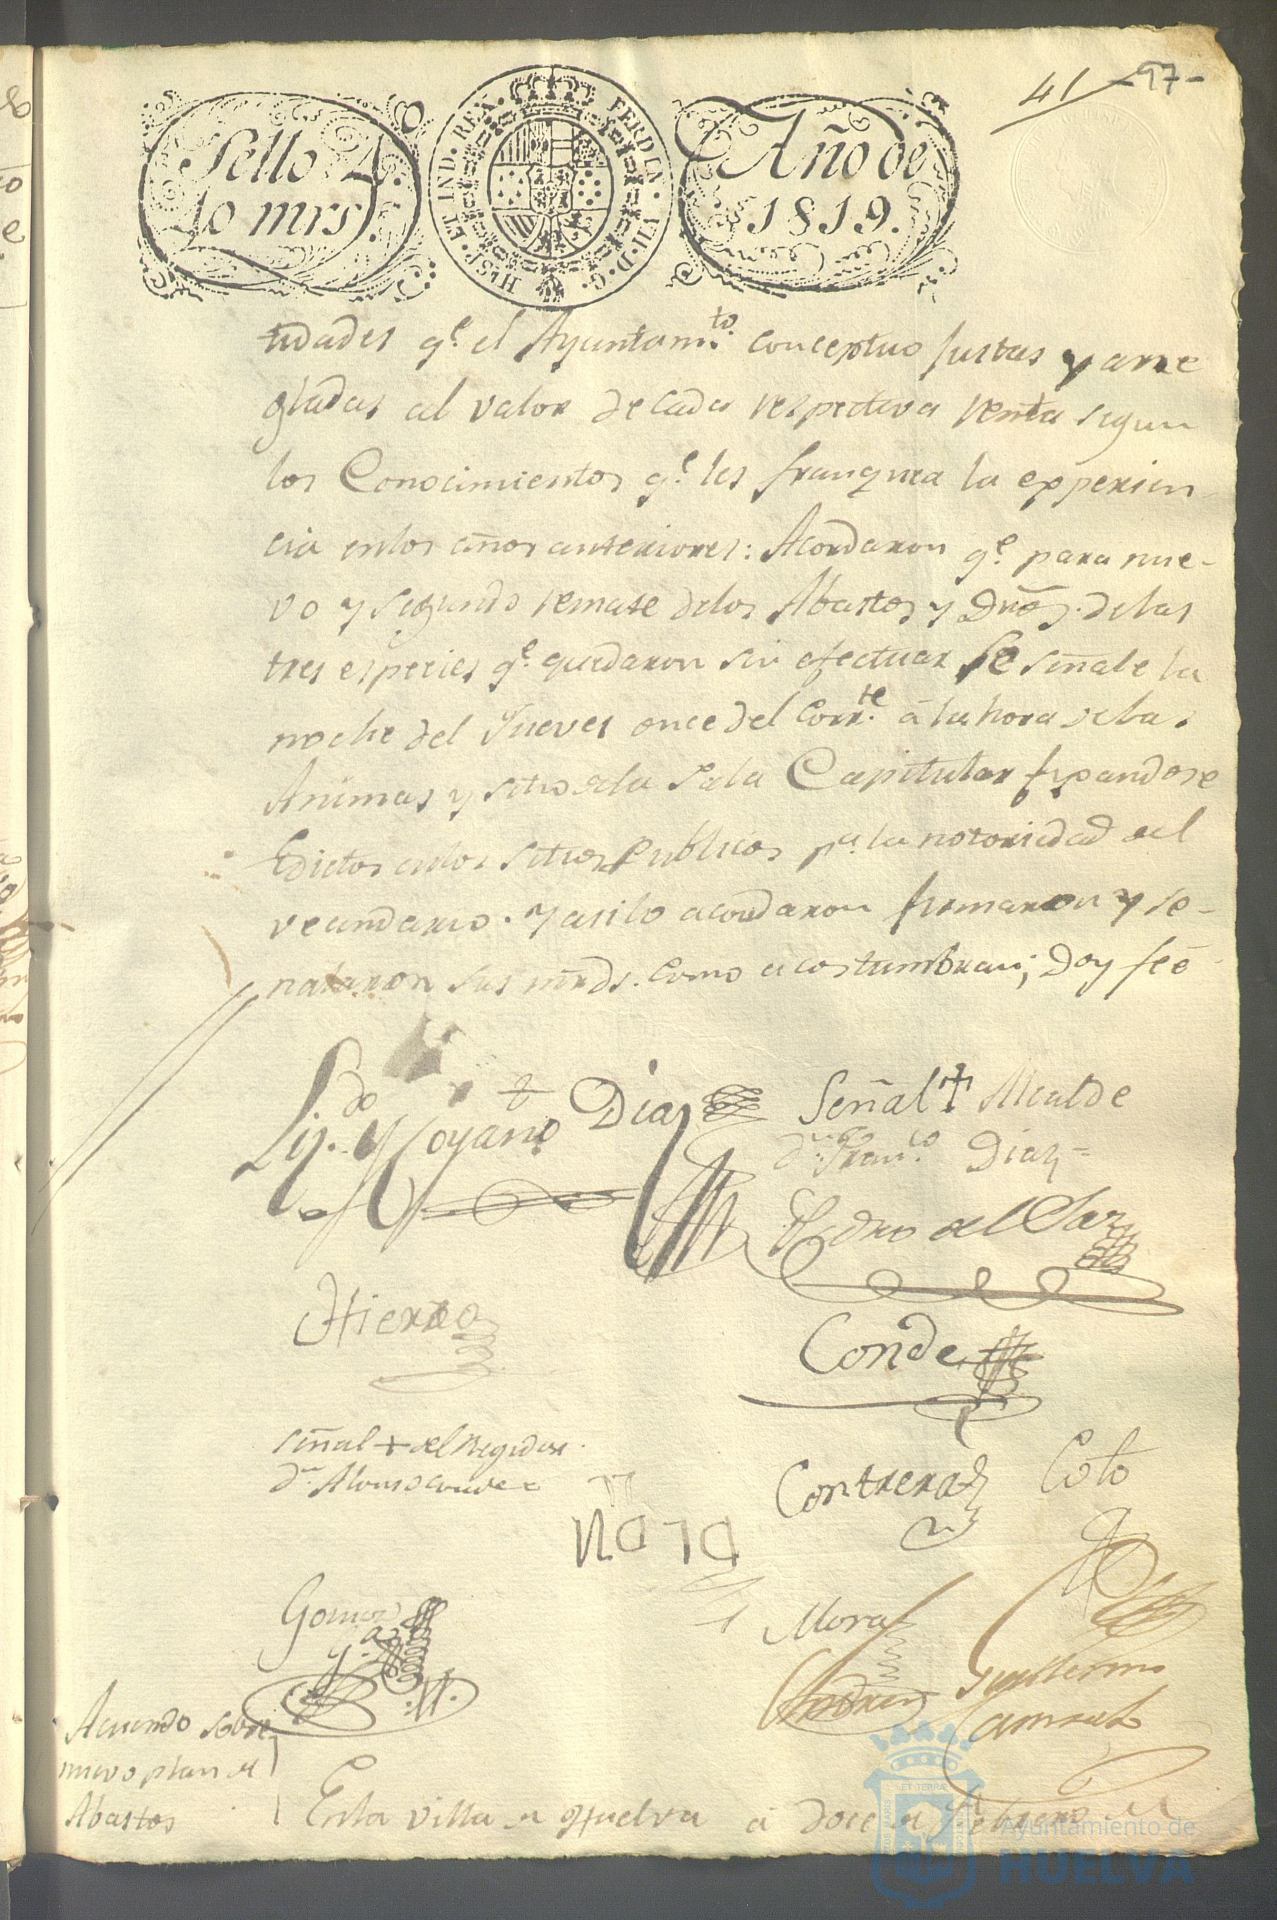 41 -97-
Sello 4º. 40 mrs. HISP. ET IND. REX. FERD. VII. D. G. Año de 1819.
tidades q.e el Ayuntam.to conceptuo justas y arre
gladas al valor de cada respectiva renta segun
los Conocimientos q.e les franquea la experien-
cia en los años anteriores: Acordaron q.e para nue-
vo y segundo remate de los Abastos y Dros. de las
tres especies q.e quedaron sin efectuar se señale la
noche del Jueves once del corr.te á la hora de las
Animas y sitio de la Sala Capitular fixandose
Edictos en los sitios publicos p.a la notoriedad del
vecindario. Y asi lo acordaron firmaron y se-
ñalaron sus mrds. como acostumbran; Doy feé
Liz.do Moyano Diaz Señal + Alcalde
d.n Fran.co Diaz =
Pedro del Saz
Hierro
Conde
señal + del Regidor
d.n Alonso Conde =
Contreras Coto
Gomez
Mora
Guillermo
Acuerdo sobre
nuevo plan de
Abastos
En la villa de Huelva á doce de Febrero de
Ayuntamiento de
HUELVA